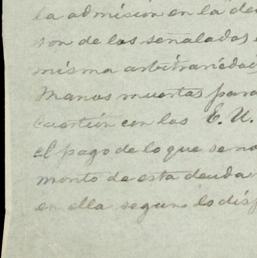 la admision en la de
son de las señaladas
misma arbitrariedad
Manos muertas para
Cuestion con los E. U.
el pago de lo que se
monto de esta deuda
en ella segun lo disp